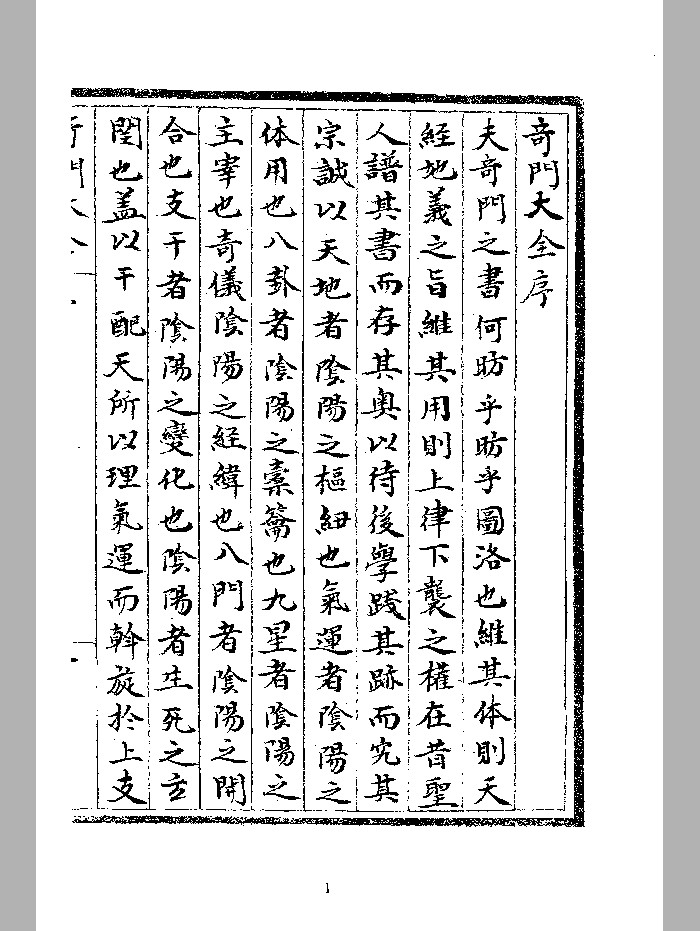 奇門大全序
夫奇門之書何昉乎昉乎圖洛也維其体則天
経地義之旨維其用則上律下襲之權在昔聖
人譜其書而存其奥以待後學踐其跡而究其
宗誠以天地者陰陽之樞紐也氣運者陰陽之
体用也八卦者陰陽之橐籥也九星者陰陽之
主宰也奇儀陰陽之経緯也八門者陰陽之開
合也支干者陰陽之變化也陰陽者生死之玄
関也盖以干配天所以理氣運而斡旋於上支
奇門大全
1